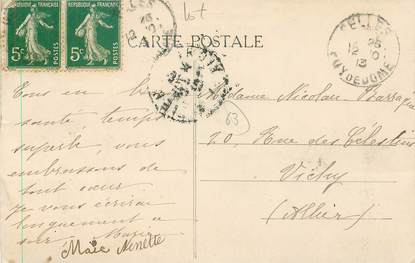 RÉPUBLIQUE FRANÇAISE RÉPUBLIQUE FRANÇAISE
5c POSTES 5c POSTES
lot
CELLES
25
12
13
PUY DE DOME
CARTE POSTALE
63
Tous en
santé, temps
superbe, vous
embrassons de
tout cœur.
Je vous écrirai
longuement
Marie Ninette
Madame Nicolau
20, Rue des Célestins
Vichy
(Allier)